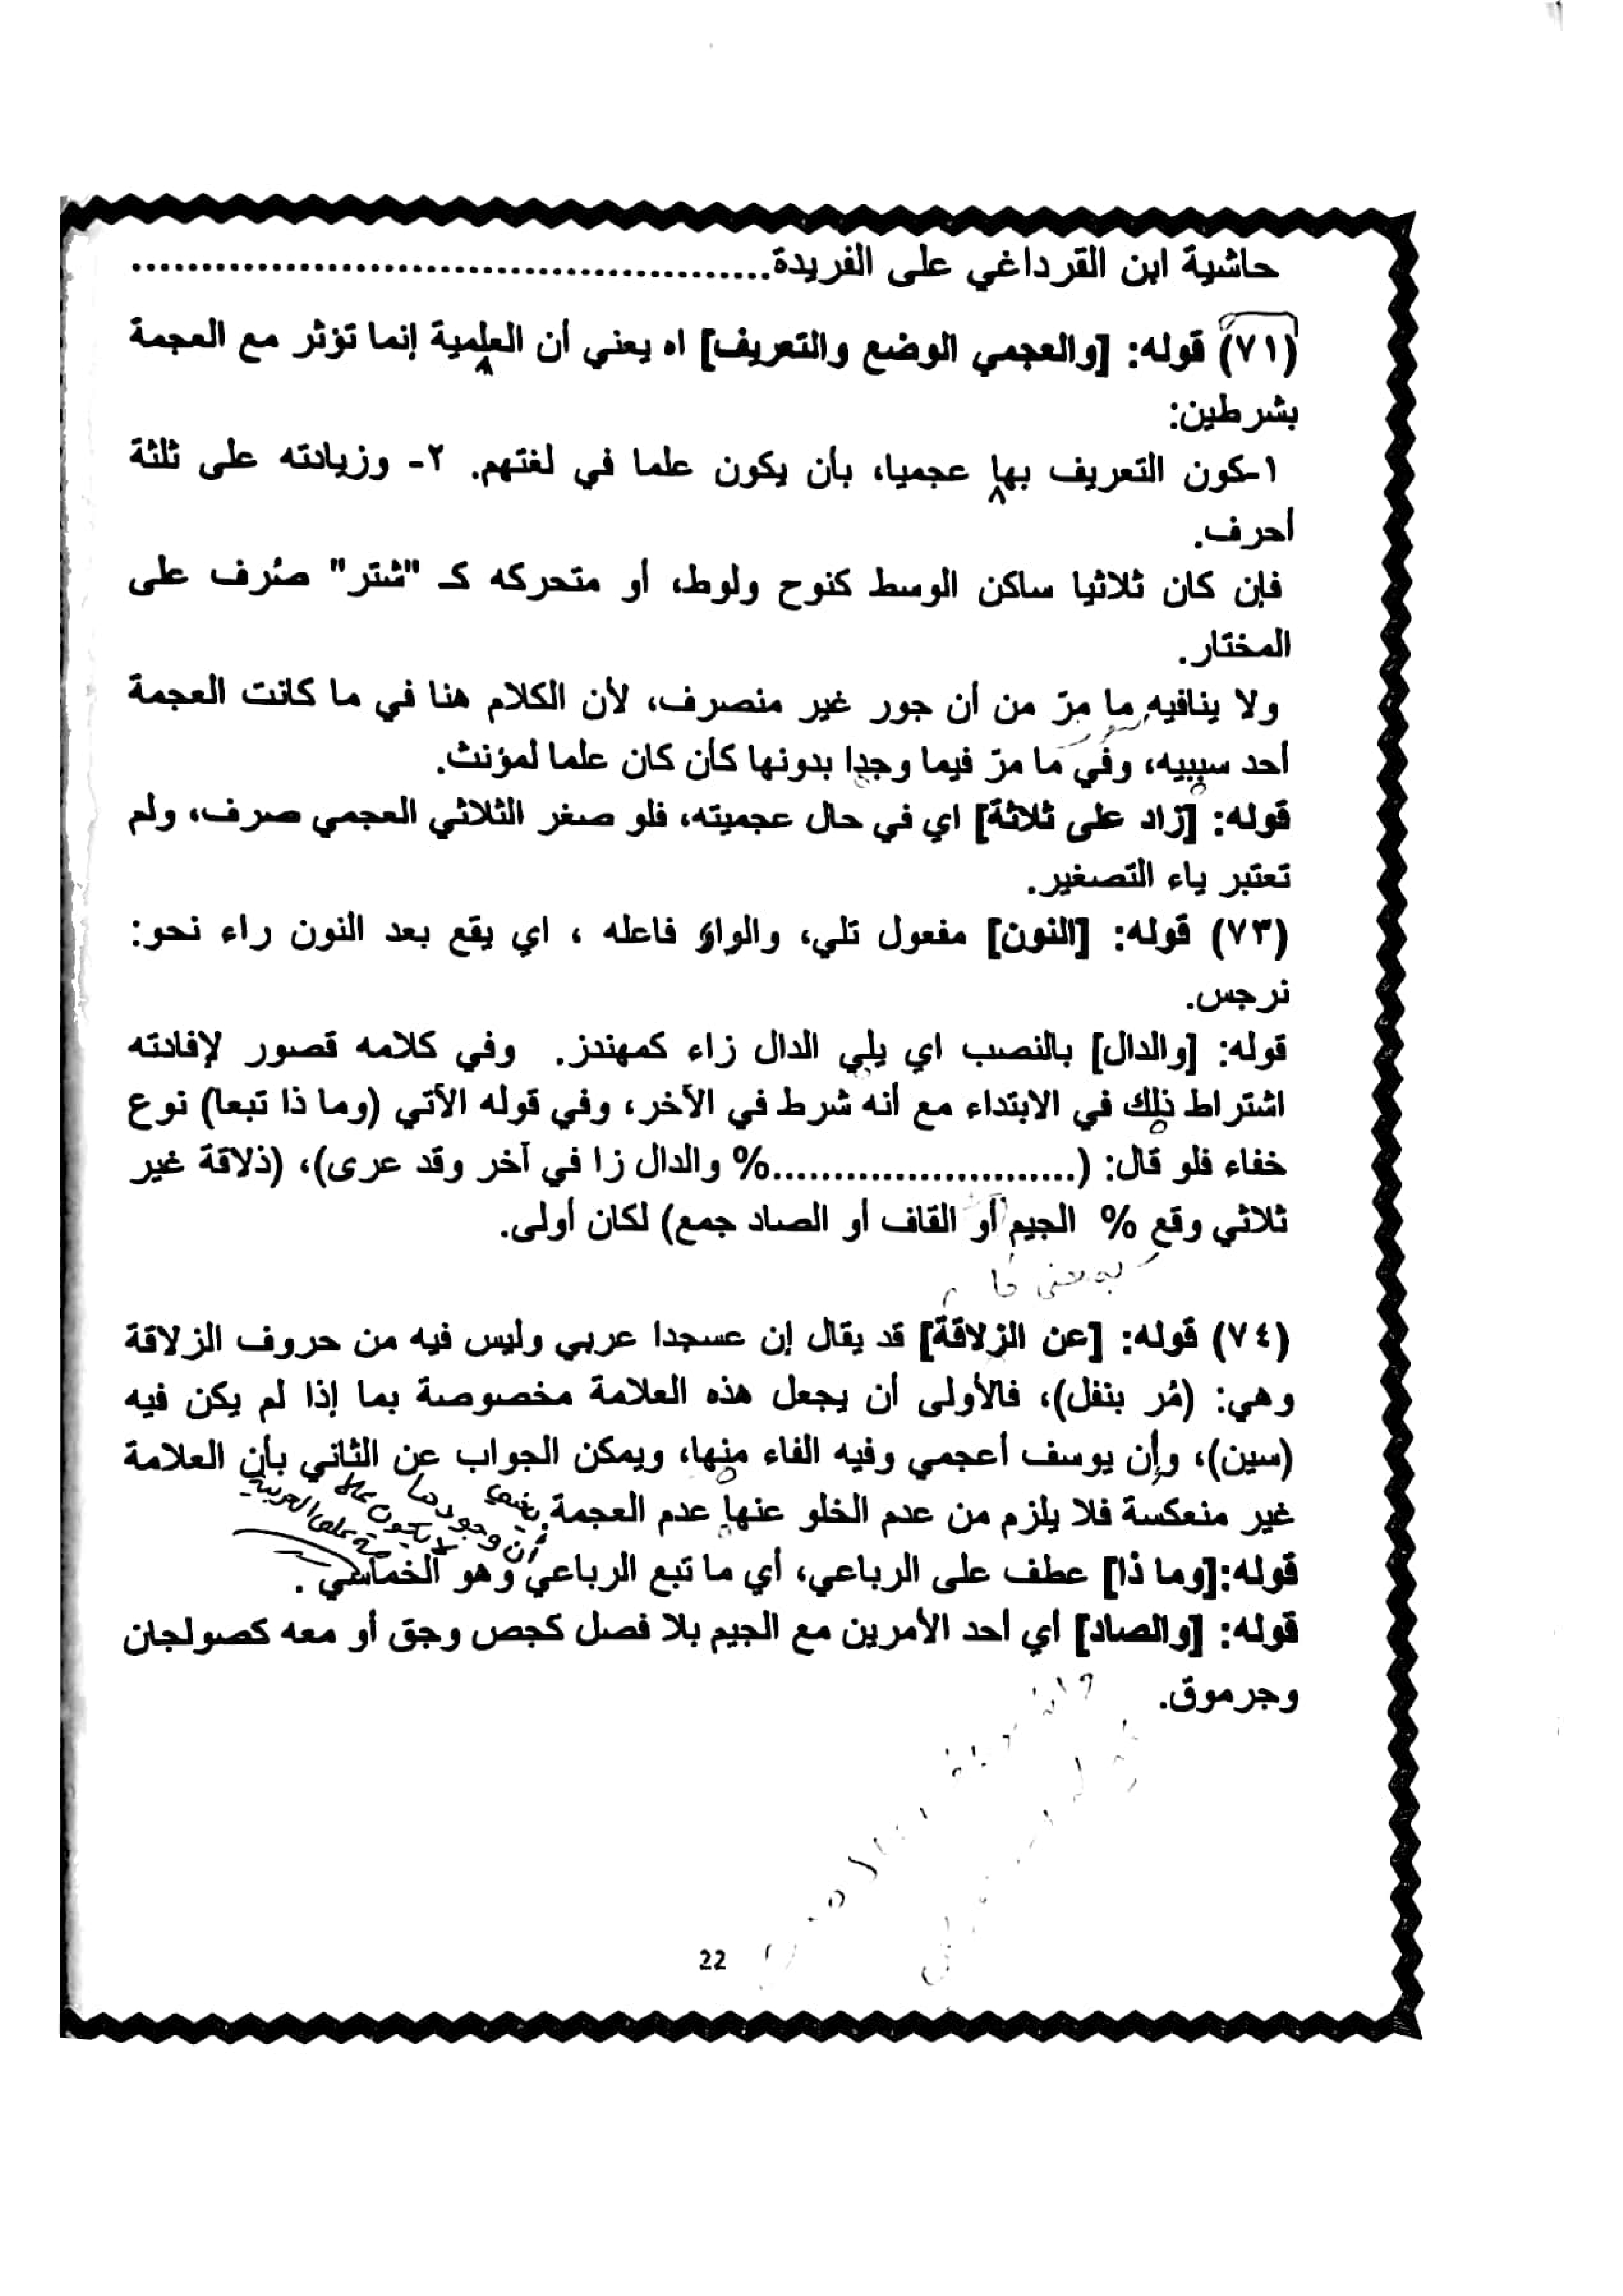 حاشية ابن القرداغي على الفريدة...............................................
(٧١) قوله: [والعجمي الوضع والتعريف] اه يعني أن العلمية إنما تؤثر مع العجمة
بشرطين:
١-كون التعريف بها عجميا، بأن يكون علما في لغتهم. ٢- وزيادته على ثلثة
أحرف.
فإن كان ثلاثيا ساكن الوسط كنوح ولوط، أو متحركه كـ "شتر" صُرف على
المختار.
ولا ينافيه ما مرّ من أن جور غير منصرف، لأن الكلام هنا في ما كانت العجمة
أحد سببيه، وفي ما مرّ فيما وجدا بدونها كأن كان علما لمؤنث.
قوله: [زاد على ثلاثة] اي في حال عجميته، فلو صغر الثلاثي العجمي صرف، ولم
تعتبر ياء التصغير.
(٧٣) قوله: [النون] مفعول تلي، والواو فاعله ، اي يقع بعد النون راء نحو:
نرجس.
قوله: [والدال] بالنصب اي يلي الدال زاء كمهندز. وفي كلامه قصور لإفادته
اشتراط ذلك في الابتداء مع أنه شرط في الآخر، وفي قوله الآتي (وما ذا تبعا) نوع
خفاء فلو قال: (.........................% والدال زا في آخر وقد عرى)، (ذلاقة غير
ثلاثي وقع % الجيم أو القاف أو الصاد جمع) لكان أولى.
(٧٤) قوله: [عن الزلاقة] قد يقال إن عسجدا عربي وليس فيه من حروف الزلاقة
وهي: (مُر بنفل)، فالأولى أن يجعل هذه العلامة مخصوصة بما إذا لم يكن فيه
(سين)، وإن يوسف أعجمي وفيه الفاء منها، ويمكن الجواب عن الثاني بأن العلامة
غير منعكسة فلا يلزم من عدم الخلو عنها عدم العجمة.
قوله:[وما ذا] عطف على الرباعي، أي ما تبع الرباعي وهو الخماسي .
قوله: [والصاد] أي احد الأمرين مع الجيم بلا فصل كجص وجق أو معه كصولجان
وجرموق.
22